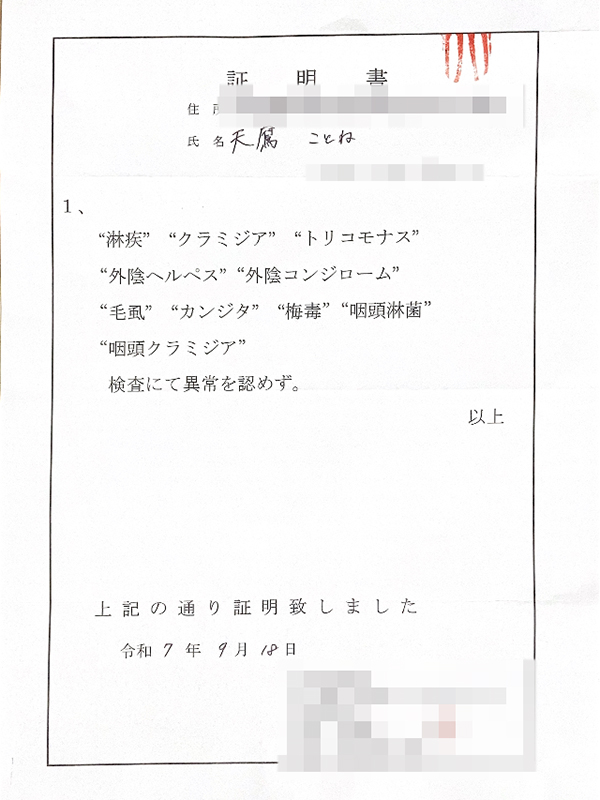 証明書
住所
氏名 天鷹 ことね
1、
“淋疾” “クラミジア” “トリコモナス”
“外陰ヘルペス” “外陰コンジローム”
“毛虱” “カンジタ” “梅毒” “咽頭淋菌”
“咽頭クラミジア”
検査にて異常を認めず。
以上
上記の通り証明致しました
令和7年9月18日